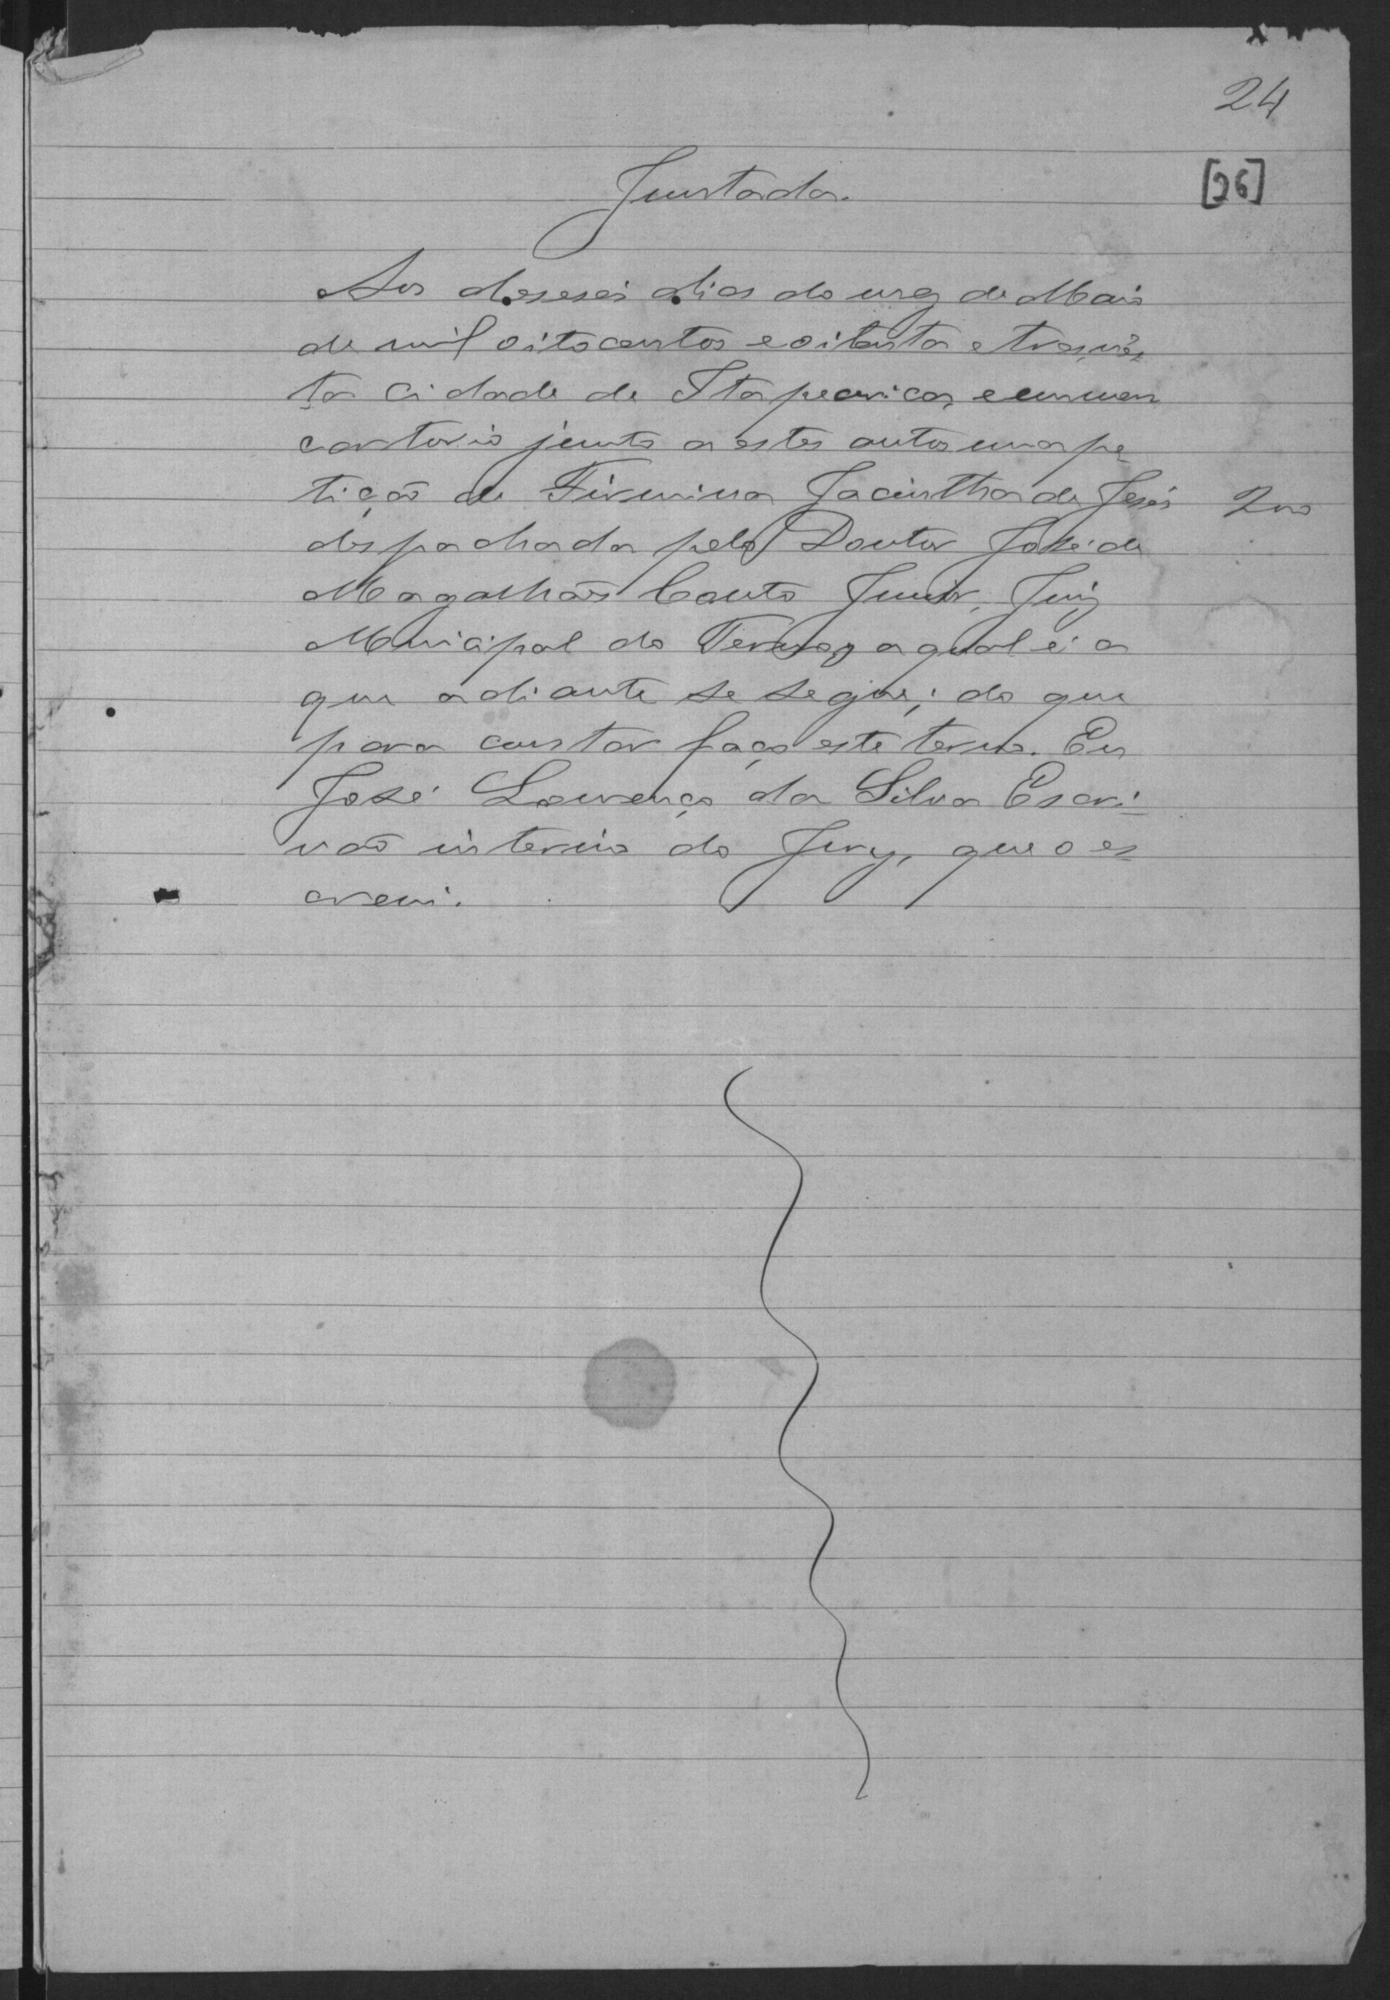 24
[26]
Juntada.
Aos deseseis dias do mez de Maio
de mil oitocentos e oitenta e tres, nes-
ta cidade de Itapecerica, e em meu
cartorio junto a estes autos uma pe
tição de Firmina Jacintha de Jesus 200
despachada pelo Doutor José de
Magalhães Couto Junior, Juiz
Municipal do Termo, a qual é a
que adiante se segue; do que
para constar faço este termo. Eu
José Lourenço da Silva Escri-
vão interino do Jury, que o es-
crevi.